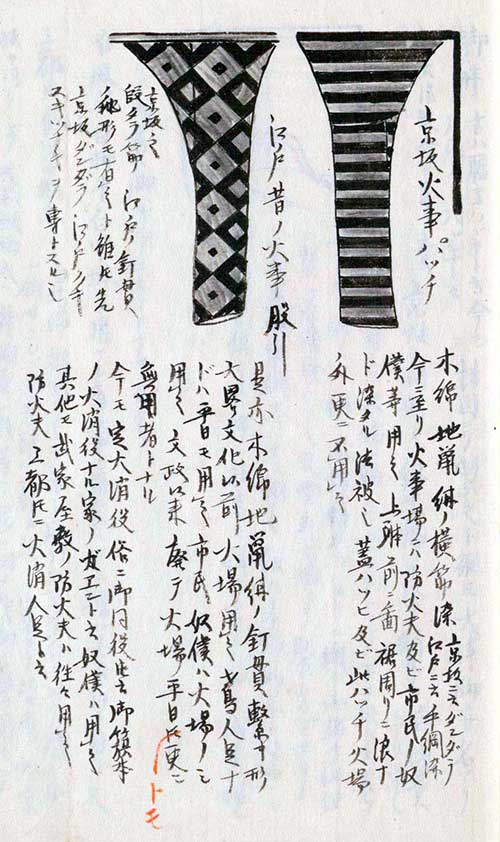 京坂火事パッチ
木綿地鼠紺ノ横筋染 京坂ニ云ダンダラ 江戸ニ云手綱染
今ニ至リ火事場ニハ防火夫及ビ市民ノ奴
僕等用之 上 前ニ面 裾周リニ浪ナ
ド染タル法被之 蓋ハッヒ及ビ此ハッチ火場
外更ニ不用之
江戸昔ノ火事股引
是亦木綿地鼠紺ノ釘貫繋ギ形
大畧文化以前火場用之 鳶人足ナ
ドハ平日モ用之 市民ノ奴僕ハ火場ノミ
用之 文政以来廃テ火場平日トモ更ニ
無用者トナル
今モ定火消役俗ニ御同役ト云御籏本
ノ火消役ナル家ノガエント云奴僕ハ用之
其他モ武家屋敷ノ防火夫ハ往々用之
防火夫三都トモニ火消人足ト云
京坂之
段ダラ筋 江戸ノ釘貫
形モ有之ト雖トモ先
京坂ダンダラ 江戸クギ
ヌキツナギヲ専トスル也
トモ